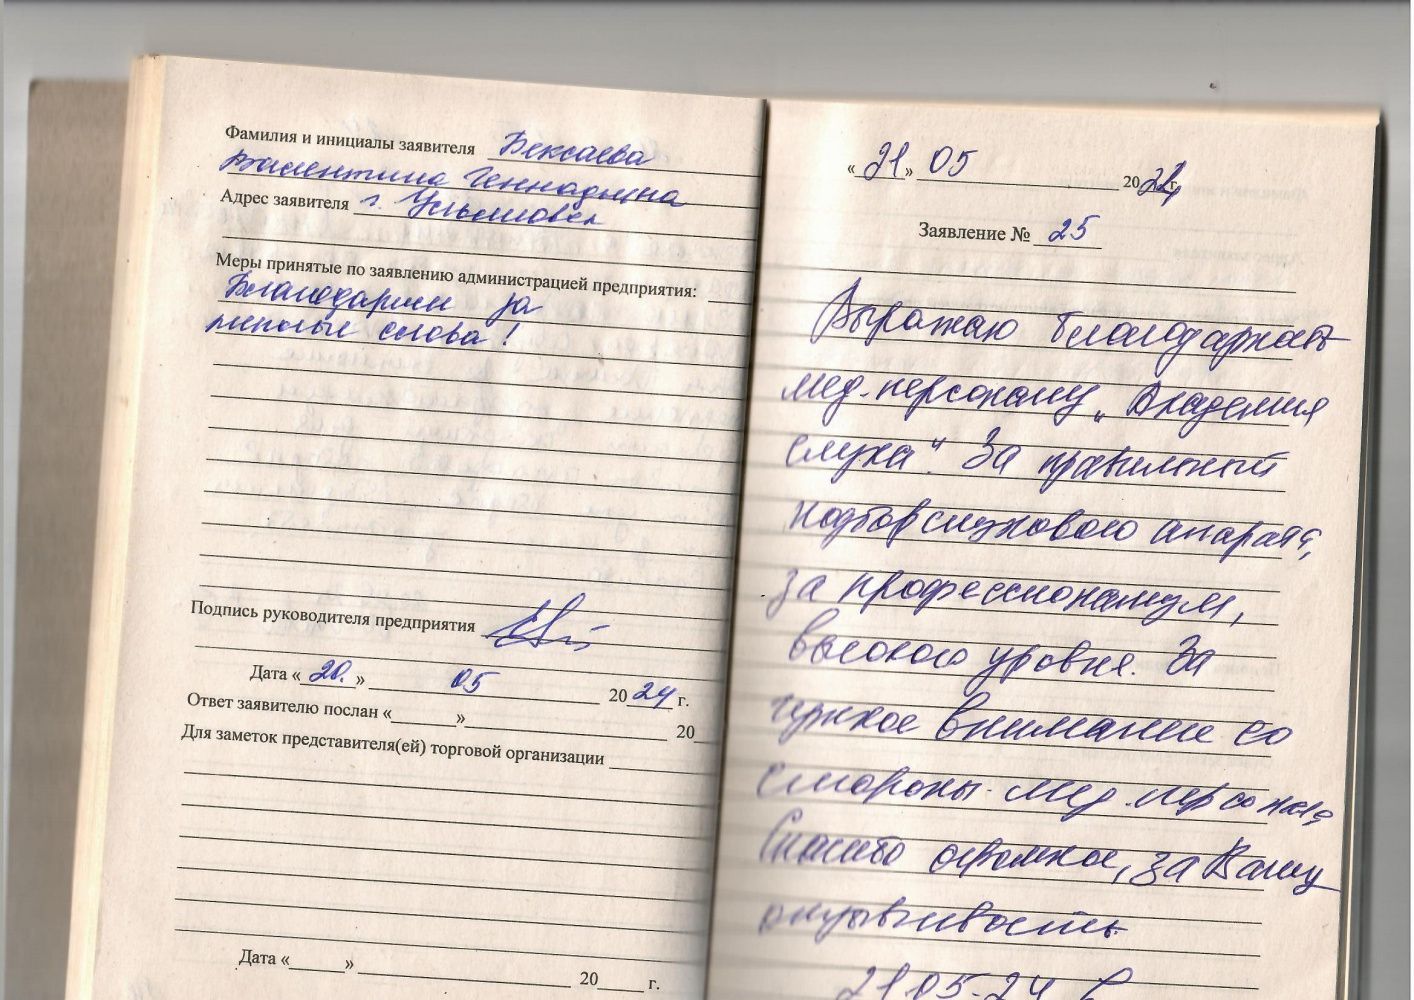 Фамилия и инициалы заявителя Бексаева
Валентина Геннадьевна
Адрес заявителя г. Ульяновск
Меры принятые по заявлению администрацией предприятия:
Благодарим за
теплые слова!
Подпись руководителя предприятия
Дата «20.» 05 2024 г.
Ответ заявителю послан « » 20
Для заметок представителя(ей) торговой организации
Дата « » 20 г.
«21» 05 2024 г.
Заявление № 25
Выражаю благодарность
мед. персоналу „Академия
слуха". За правильный
подбор слухового апарата,
за профессионализм,
высокого уровня. За
чуткое внимание со
стороны мед. персонала
Спасибо огромное, за Вашу
отзывчивость
21.05.24